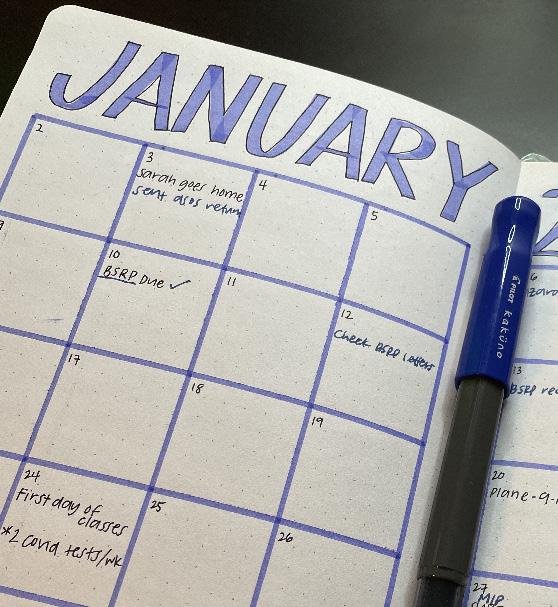 JANUARY
2
3
Sarah goes home
sent asos return
4
5
6
9
10
BSRP Due ✓
11
12
Check BSRP letters
13
BSRP
17
18
19
20
24
First day of
classes
*2 covid tests/wk
25
26
27
MLP
PILOT kaküno